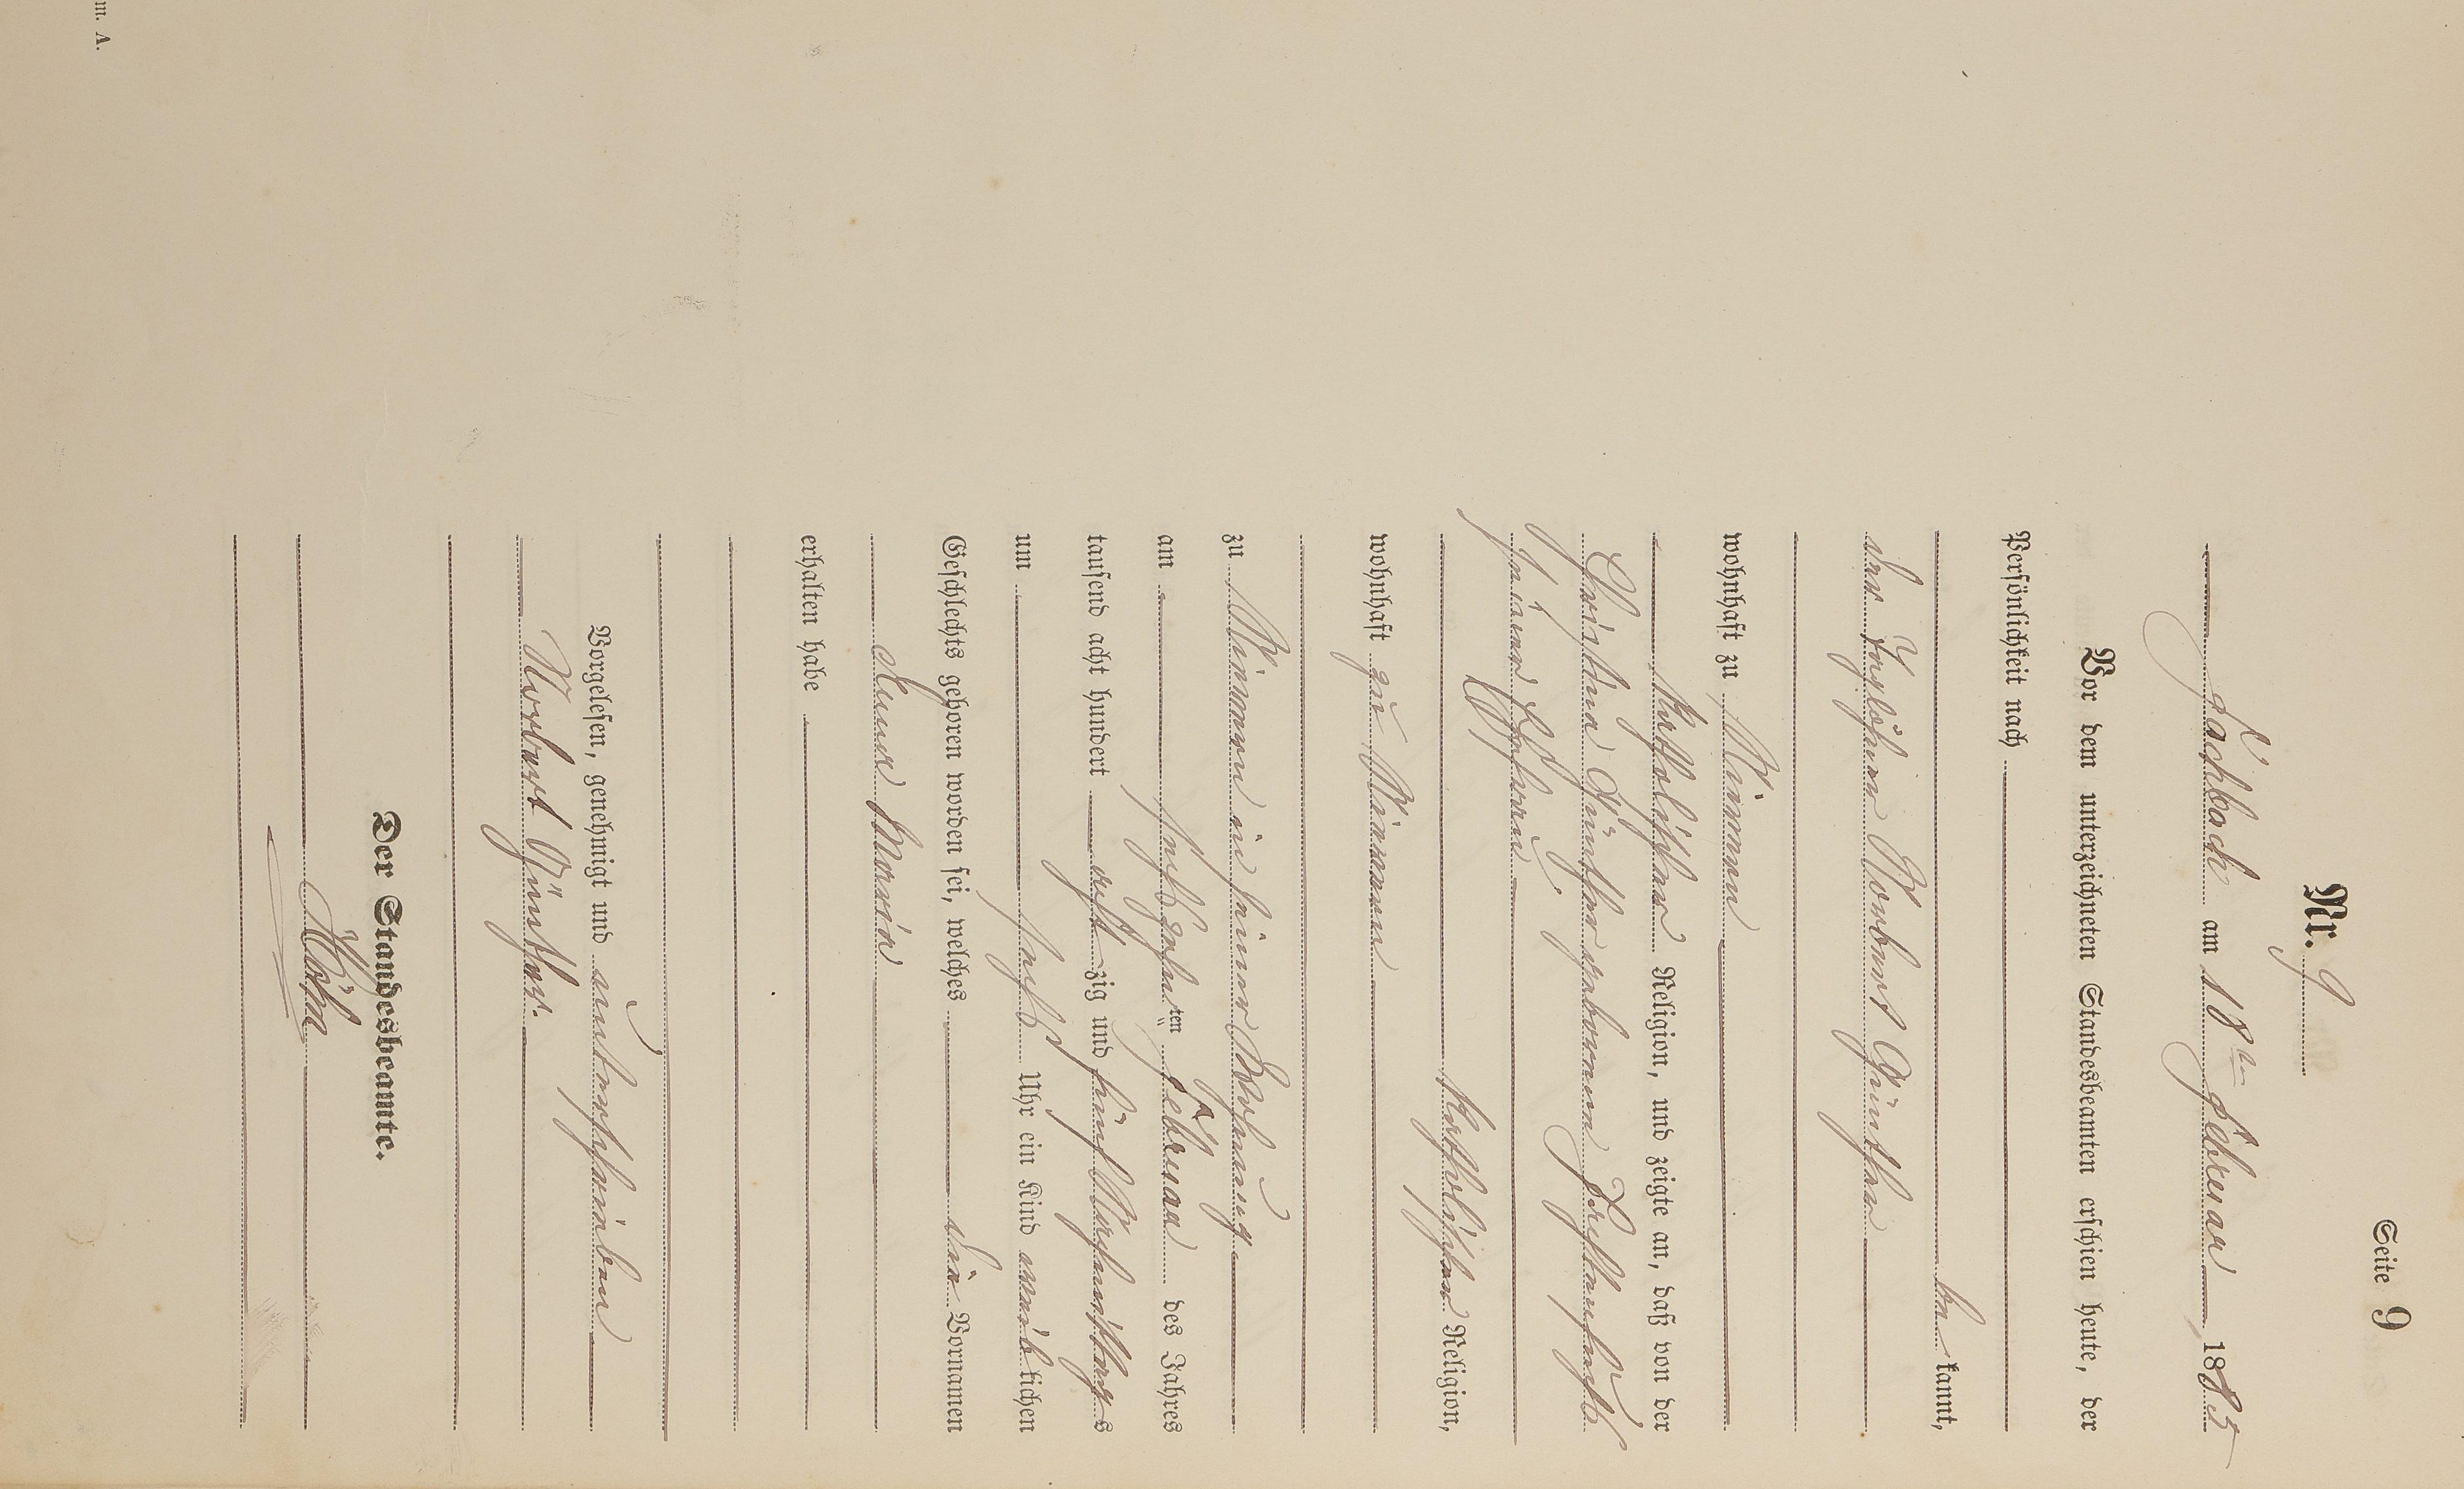 Seite 9
Nr. 9
Fachbach am 18ten Februar 1885
Vor dem unterzeichneten Standesbeamten erschien heute, der
Persönlichkeit nach
bekannt,
der Taglöhner Norbert Günther
wohnhaft zu Nievern
katholischer Religion, und zeigte an, daß von der
Christina Günther geborenen
seiner Ehefrau,
katholischer Religion,
wohnhaft zu Nievern
zu Nievern in seiner Wohnung
am sechszehnten Februar des Jahres
tausend acht hundert achtzig und fünf Nachmittags
um sechs Uhr ein Kind weiblichen
Geschlechts geboren worden sei, welches die Vornamen
Anna Maria
erhalten habe
Vorgelesen, genehmigt und unterschrieben
Norbert Günther.
Der Standesbeamte.
m. A.